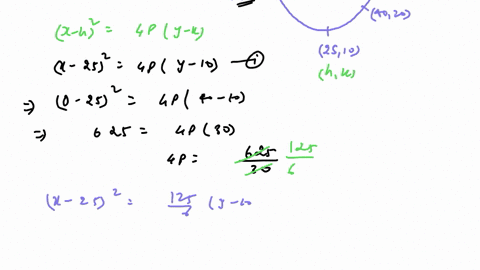 (x-h)² = 4P (y-k)
(40,20)
(25,10)
(x-25)² = 4P (y-10) — ①
(h,k)
⇒ (0-25)² = 4P (40-10)
⇒ 625 = 4P (30)
4P = 625/30 125/6
(x-25)² = 125/6 (y-10